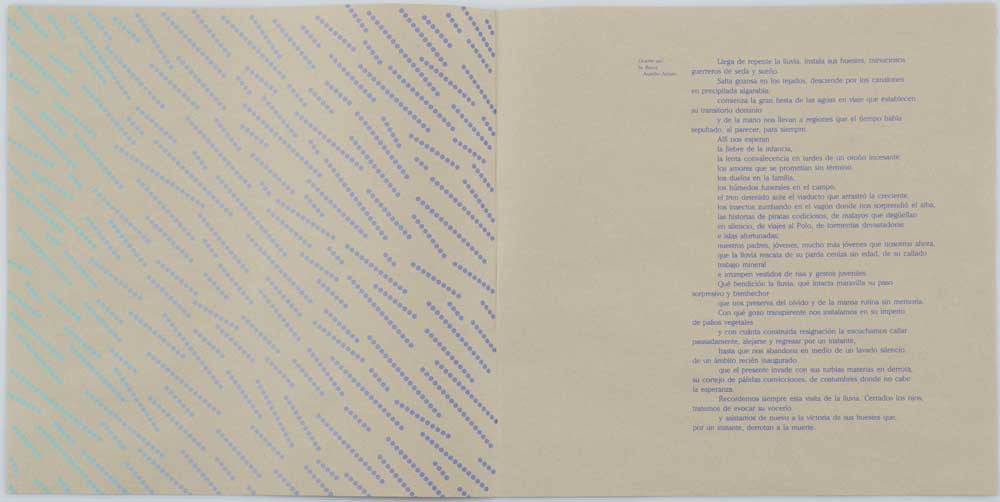 Llega de repente la lluvia, instala sus huestes, minuciosos
guerreros de seda y sueño.
Salta gozosa en los tejados, desciende por los canalones
en precipitada algarabía:
comienza la gran fiesta de las aguas en viaje que establecen
su transitorio dominio
y de la mano nos llevan a regiones que el tiempo había
sepultado, al parecer, para siempre.
Allí nos esperan
la fiebre de la infancia,
la lenta convalecencia en tardes de un otoño incesante,
los amores que se prometían sin término,
los duelos en la familia,
los húmedos funerales en el campo,
el tren detenido ante el viaducto que arrastró la creciente,
los insectos zumbando en el vagón donde nos sorprendió el alba,
las historias de piratas codiciosos, de malayos que degüellan
en silencio, de viajes al Polo, de tormentas devastadoras
e islas afortunadas;
nuestros padres, jóvenes, mucho más jóvenes que nosotros ahora,
que la lluvia rescata de su parda ceniza sin edad, de su callado
trabajo mineral
e irrumpen vestidos de risa y gestos juveniles.
Qué bendición la lluvia, qué intacta maravilla su paso
sorpresivo y bienhechor
que nos preserva del olvido y de la mansa rutina sin memoria.
Con qué gozo transparente nos instalamos en su imperio
de palios vegetales
y con cuánta construida resignación la escuchamos callar
pausadamente, alejarse y regresar por un instante,
hasta que nos abandona en medio de un lavado silencio,
de un ámbito recién inaugurado
que el presente invade con sus turbias materias en derrota,
su cortejo de pálidas convicciones, de costumbres donde no cabe
la esperanza.
Recordemos siempre esta visita de la lluvia. Cerrados los ojos,
tratemos de evocar su vocerío
y asistamos de nuevo a la victoria de sus huestes que,
por un instante, derrotan a la muerte.